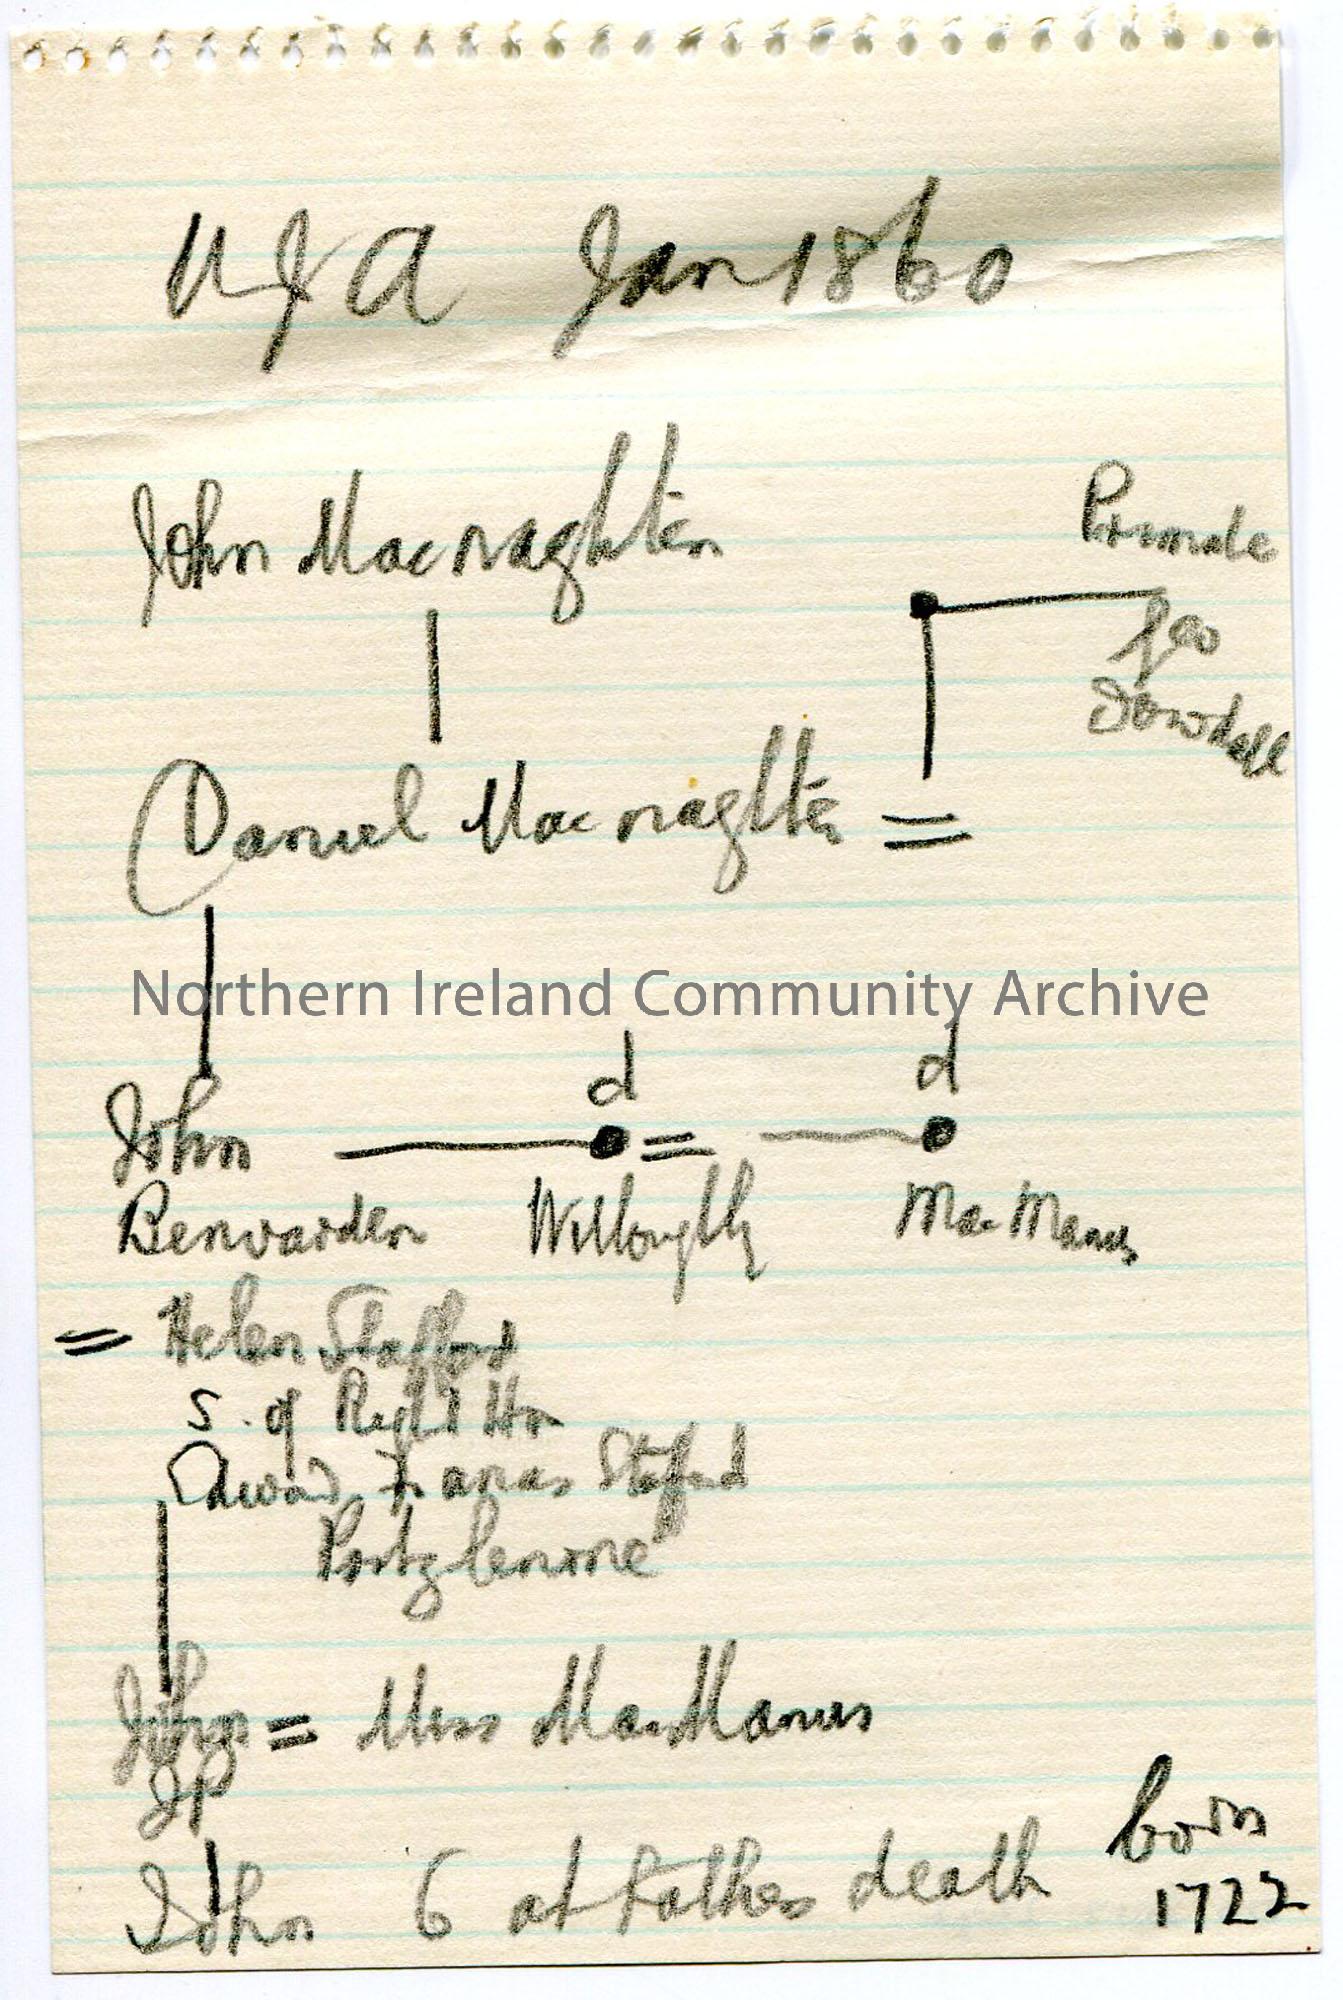 UJA Jan 1860
John Macnaghten
Primate
Geo
Dowdall
Daniel Macnaghten =
Northern Ireland Community Archive
d d
John =
Benvarden Willoughby MacManus
= Helen Stafford
S. of Right Hon
Edward Francis Stafford
Portglenone
John = Miss MacManus
JP
born
John 6 at Fathers death
1722